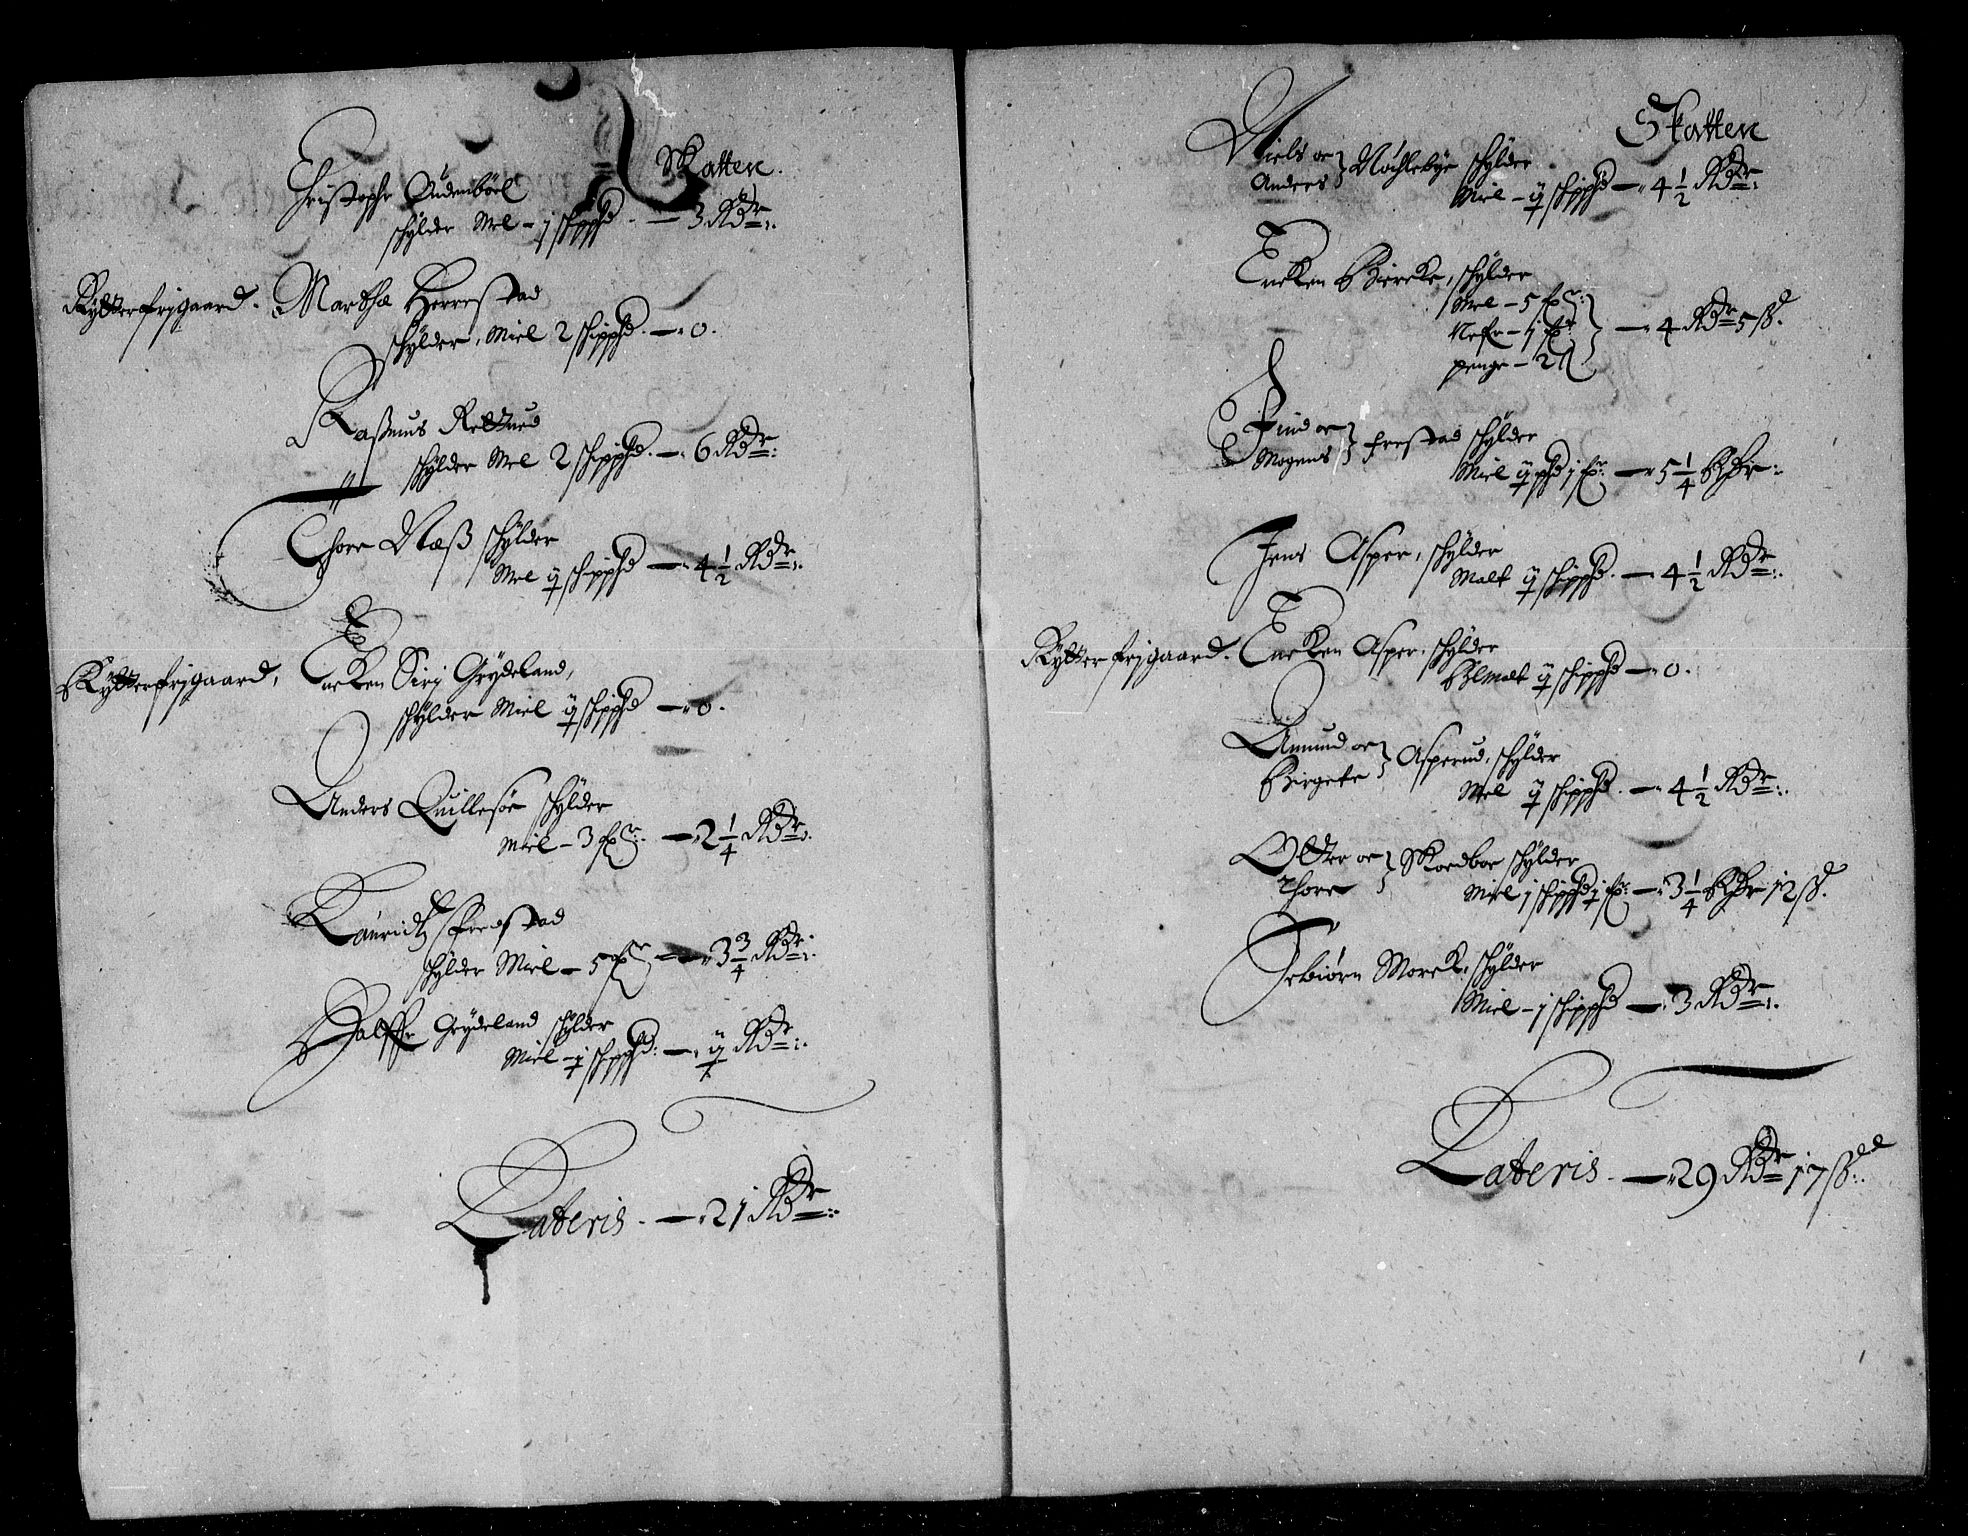 Skatten.
Christopher Audenbøel
schylder Mel - j schippd. — 3 Rdr:
Rytterfrijgaard. Marthæ Herrestad
schylder, Miel 2 schippd. — 0.
Rasmus Rettued
schylder Mel 2 schippd. — 6 Rdr:
Thore Næss schylder
Mel ij schippd — 4 1/2 Rdr:
Rytterfrijgaard, Encken Sirj Grydeland,
schylder Miel ij schippd — 0.
Anders Quillesøe schylder
Miel - 3 fr: — 2 1/4 Rdr:
Lauridtz Fredstad
schylder Miel - 5 fr — 3 3/4 Rdr:
Halffr Grydeland schylder
Miel - j schippd: — ij Rdr:
Lateris. — 21 Rdr:
Skatten
Niels oc Anders Nøchlebye schylder
Miel - ij schippd — 4 1/2 Rdr:
Encken Biercke, schylder
Mel - 5 fr:
Nefr - j fr — 4 Rdr 5 ß.
penge - 2 ß
Find oc Mogens Frestad schylder
Miel ij pd j fr: — 5 1/4 Rdr:
Jens Asper, schylder
Malt ij schippd. — 4 1/2 Rdr:
Rytterfrijgaard. Encken Asper, schylder
Blmalt ij schippd — 0.
Amund oc Birgete Asperud, schylder
Mel ij schippd. — 4 1/2 Rdr:
Otter oc Thore Skoedboe schylder
Miel j schippd j fr: — 3 1/4 Rdr 12 ß.
Tebiørn Morck, schylder
Miel - j schippd — 3 Rdr:
Lateris. — 29 Rdr 17 ß: